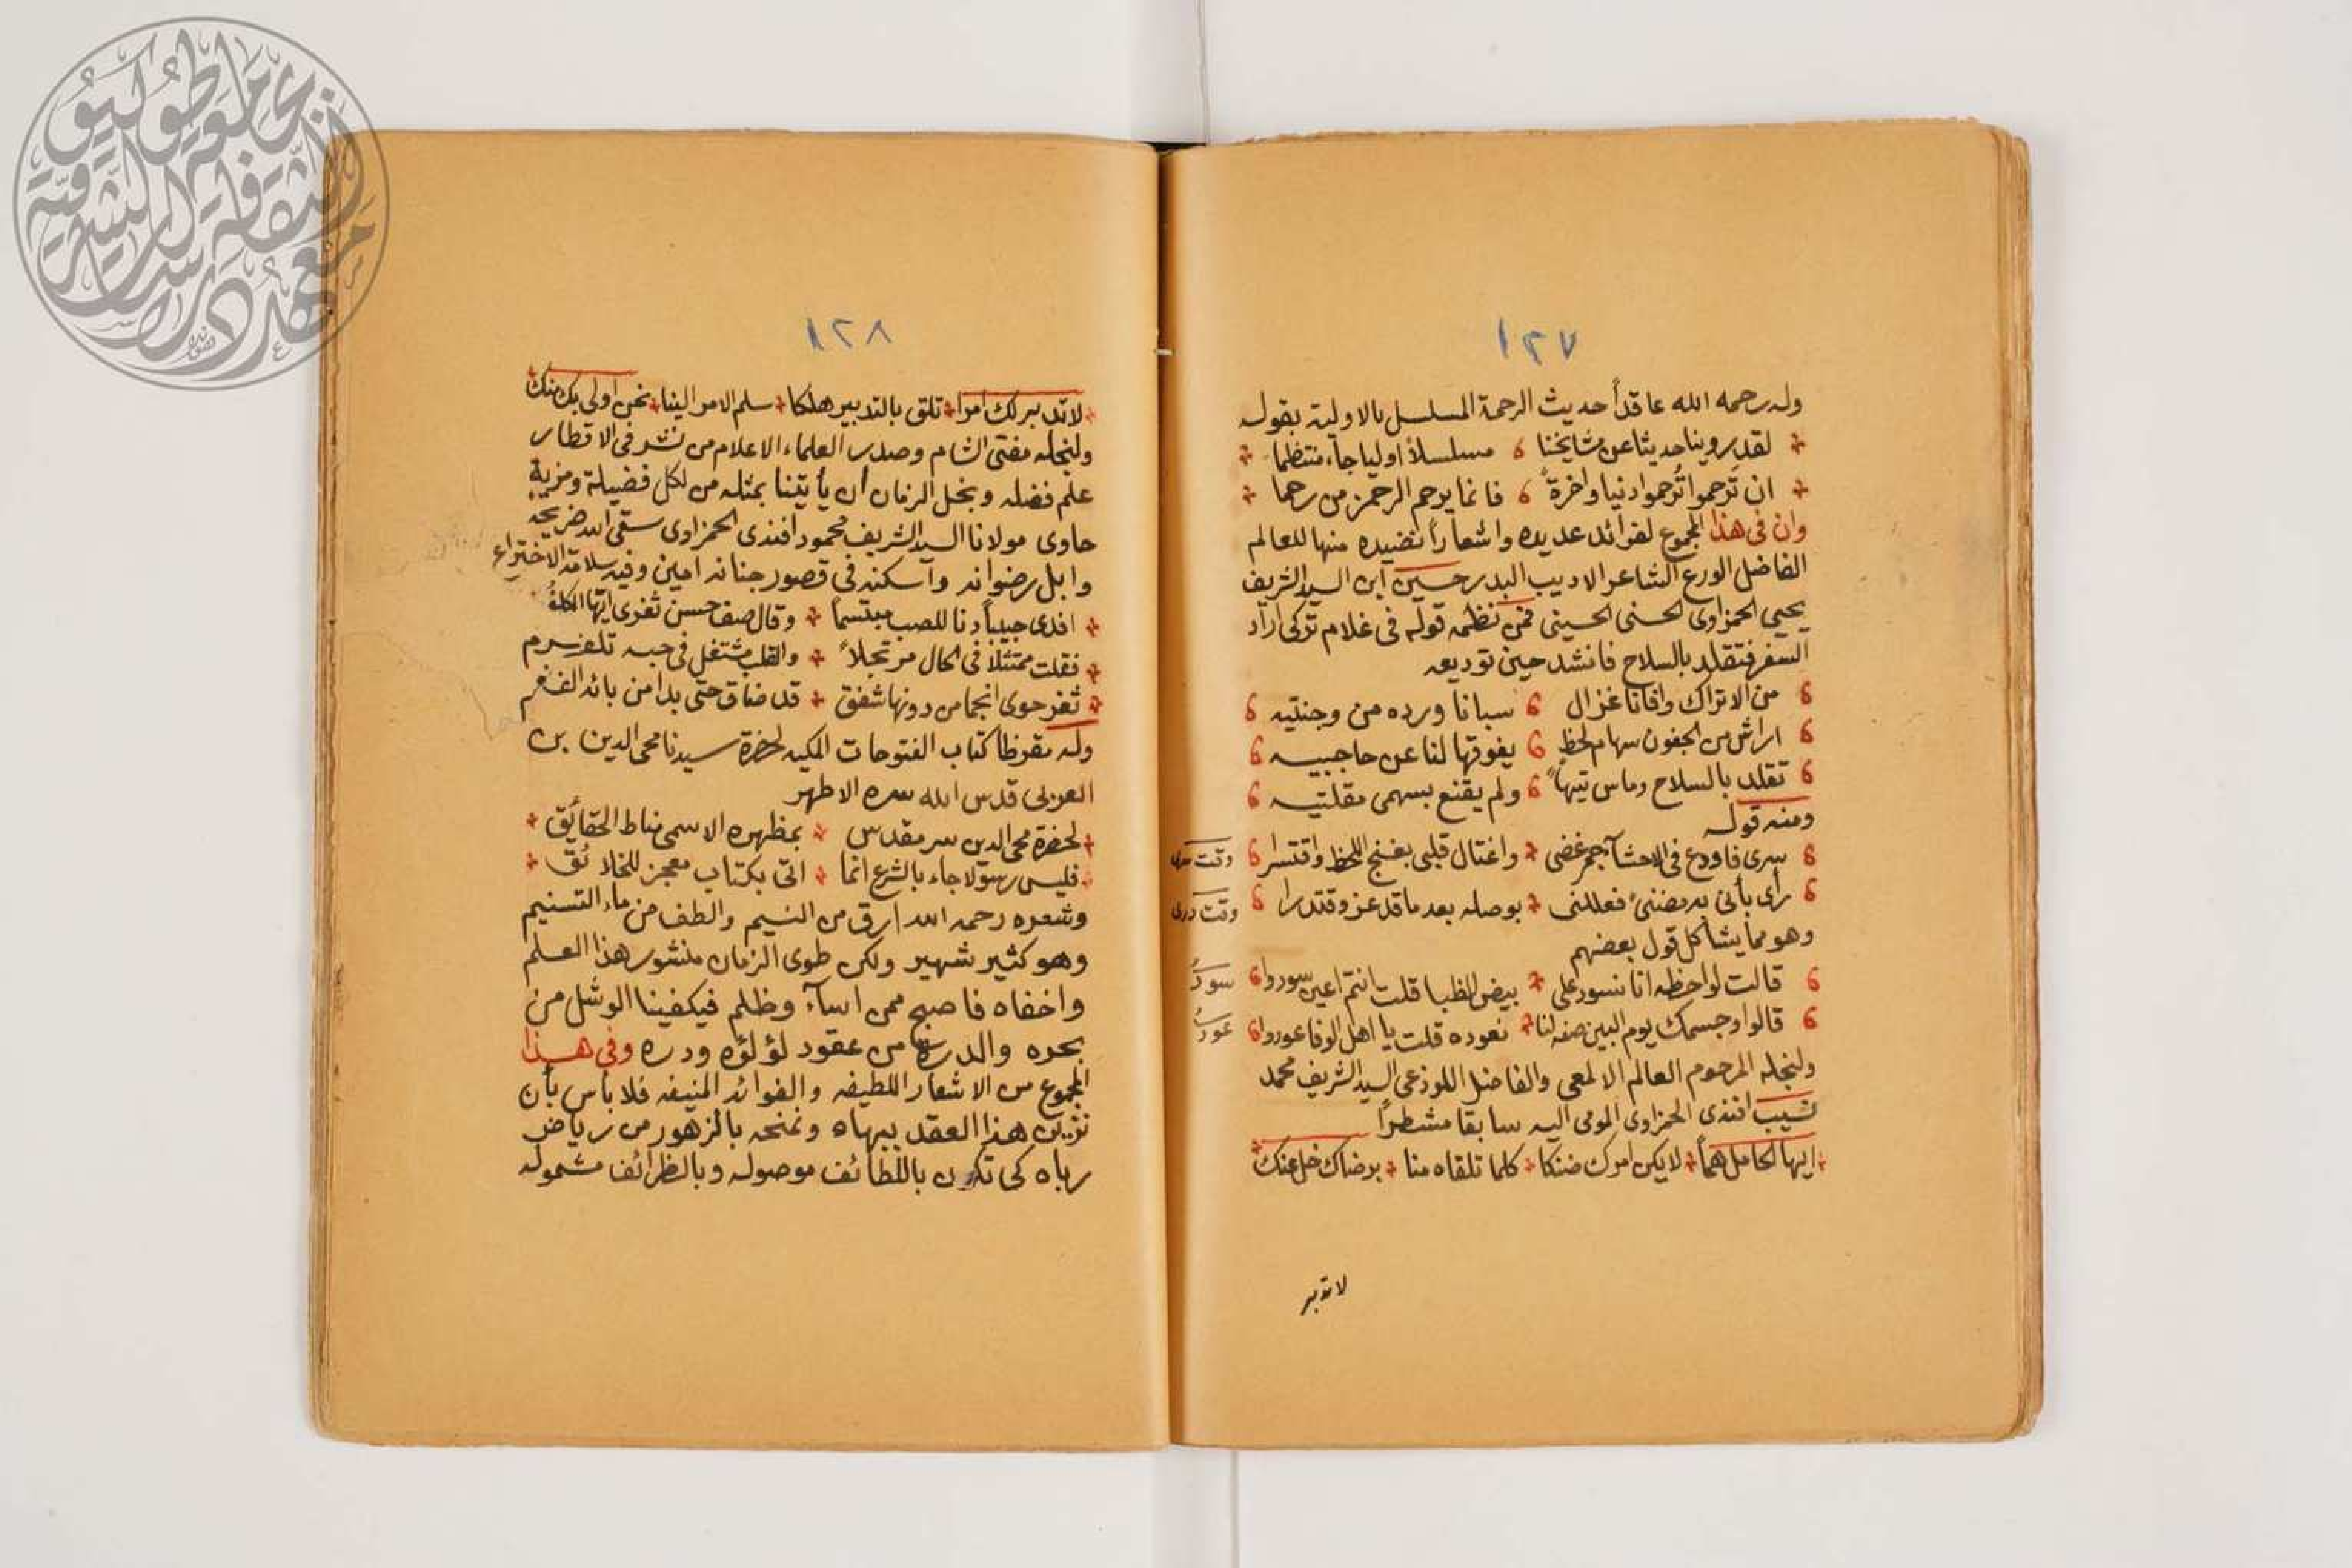 ١٢٧
وله رحمه الله عاقداً حديث الرحمة المسلسل بالاولية بقوله
لقد روينا حديثا عن مشايخنا مسلسلاً اوليا جاء منتظما
ان تَرحموا تُرحموا دنيا واخرةً فانما يرحم الرحمن من رحما
وان في هذا المجموع لفرائد عديده واشعاراً نضيده منها للعالم
الفاضل الورع الشاعر الاديب البدر حسين ابن السيد الشريف
يحيى الحمزاوى الحسنى الحسينى فمن نظمه قوله فى غلام تركى اراد
السفر فتقلد بالسلاح فانشد حين توديعه
من الاتراك وافانا غزال سبانا ورده من وجنتيه
اراش من الجفون سهام لحظٍ يفوقها لنا عن حاجبيه
تقلد بالسلاح وماس تيهاً ولم يقنع بسهمى مقلتيه
ومنه قوله
سرى فاودع فى الاحشآ جمر غضى واغتال قلبى بغنج اللحظ واقتسرا وقت سرى
رأى بأنى به مضنىً فعللنى بوصله بعد ما قد عز وقتدرا وقت درى
وهو مما يشاكل قول بعضهم
قالت لواحظه انا نسور على بيض الظبا قلت انتم اعين سوردوا سود
قالوا وجسمك يوم البين صفه لنا نعوده قلت يا اهل الوفا عوردوا عود
ولنجله المرحوم العالم الالمعى والفاضل اللوذعى السيد الشريف محمد
نسيب افندى الحمزاوى المومى اليه سابقا مشطراً
ايها الحامل هماً لا يكن امرك ضنكا كلما تلقاه منا برضاك خل عنك
لا تدبر
١٢٨
لا تدبر لك امرا تلق بالتدبير هلكا سلم الامر الينا نحن اولى بك منك
ولنجله مفتى الشام وصدر العلماء الاعلام من نشر فى الاقطار
علم فضله وبخل الزمان ان يأتينا بمثله من لكل فضيلة ومزية
حاوى مولانا السيد الشريف محمود افندى الحمزاوى سقى الله ضريحه
وابل رضوانه وأسكنه فى قصور جنانه امين وفيه سلامة الاختراع
افدى حبيباً دنا للصب مبتسماً وقال صف حسن ثغرى ايها الكلفُ
فقلت ممتثلاً فى الحال مرتجلاً والقلب مشتغل فى حبه
ثغر حوى انجما من دونها شفق قد ضاق حتى بدا من بائه الف
وله مقرظا كتاب الفتوحات المكيه لحضرة سيدنا محى الدين بن
العربى قدس الله سره الاطهر
لحضرة محى الدين سر مقدس بمظهره الاسمى مناط الحقائق
فليس رسولا جاء بالشرع انما اتى بكتاب معجز للخلائق
وشعره رحمه الله ارق من النسيم والطف من ماء التسنيم
وهو كثير شهير ولكن طوى الزمان منشور هذا العلم
واخفاه فاصبح ممن اسآء وظلم فيكفينا الوشل من
بحره والدرة من عقود لؤلؤه ودره وفى هذا
المجموع من الاشعار اللطيفه والفوائد المنيفه فلا بأس بأن
نزين هذا العقد ببهاه ونمنحه بالزهور من رياض
رباه كى تكون باللطائف موصوله وبالظرائف مشموله